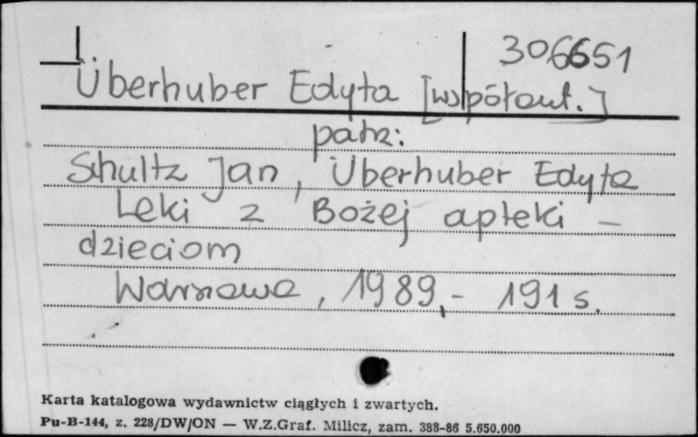 306651
Überhuber Edyta [współaut.]
patrz:
Schultz Jan, Überhuber Edyta
Leki z Bożej apteki –
dzieciom
Warszawa, 1989,- 191 s.
Karta katalogowa wydawnictw ciągłych i zwartych.
Pu-B-144, z. 228/DW/ON — W.Z.Graf. Milicz, zam. 388-86 5.650.000